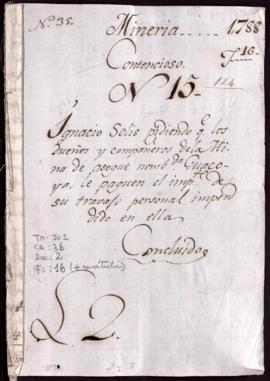 Nº. 35.
Mineria..... 1788
Contencioso. 16.
Nº 15. 124
Ygnacio Solis pidiendo q.e los
Dueños y compañeros de la Mi
na de asogue nomb.da Guaco-
ya, le paguen el imp.te de
su travajo personal impen
dido en ella
Concluido
TM-JU1
CA: 36
Doc: 2
fs: 16 (+ carátula)
L. 2.